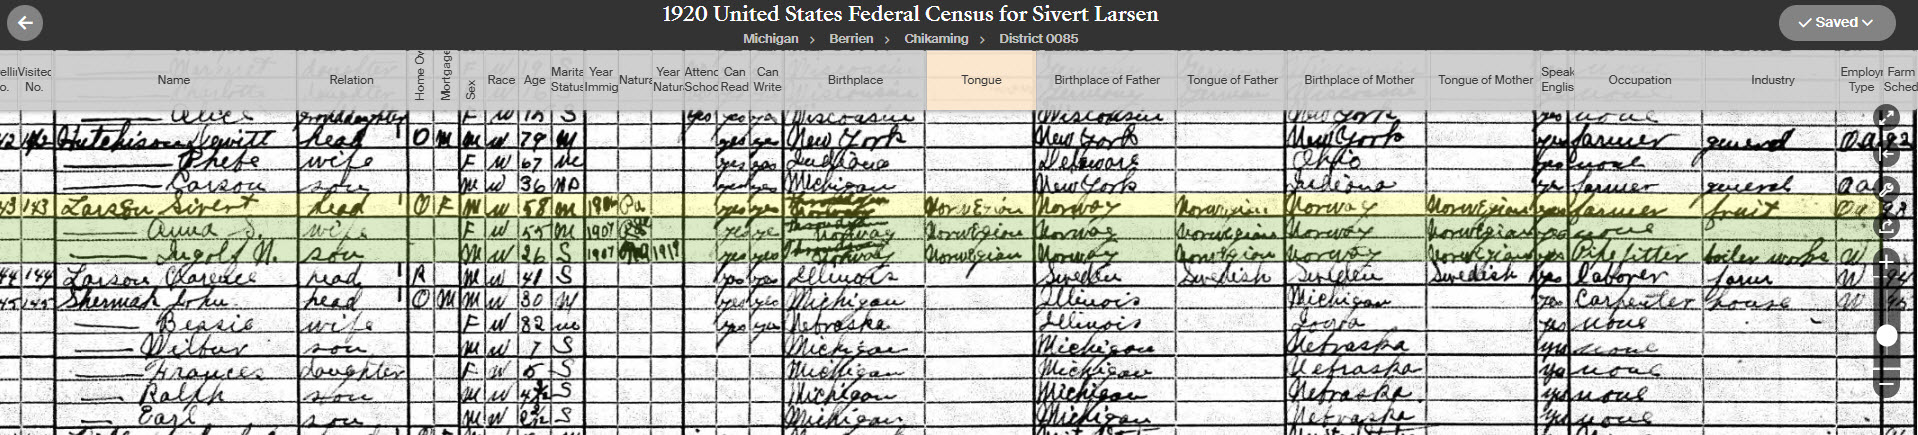 1920 United States Federal Census for Sivert Larsen
Saved
Michigan > Berrien > Chikaming > District 0085
Visited No. Name Relation Home Ow Mortgage Sex Race Age Marital Status Year Immig Natur Year Natur Attend School Can Read Can Write Birthplace Tongue Birthplace of Father Tongue of Father Birthplace of Mother Tongue of Mother Speak English Occupation Industry Employ Type Farm Sched
Alice granddaughter F W S yes yes Wisconsin Wisconsin New York yes none
142 Hutchison head 1 O M M W 79 M yes yes New York New York New York yes farmer general OA 92
Phebe wife F W 67 M yes yes Indiana Delaware Ohio yes none
Carson son M W 36 yes yes Michigan New York Indiana yes farmer general
43 143 Larsen Sivert head 1 O M W 58 M Pa yes yes Norway Norwegian Norway Norwegian Norway Norwegian yes farmer fruit
Anna S. wife F W 55 M 1907 yes yes Norway Norwegian Norway Norwegian Norway Norwegian yes none
Ingolf N. son M W 26 S 1907 1919 yes yes Norway Norwegian Norway Norwegian Norway Norwegian yes Pipefitter boiler works W
44 144 Larson Clarence head 1 R M W 41 S yes yes Illinois Sweden Swedish Sweden Swedish yes laborer farm W
45 145 Sherman John head 1 O M M W 30 M yes yes Michigan Illinois Michigan yes carpenter house W
Bessie wife F W 32 M yes yes Nebraska Illinois yes none
Wilbur son M W 7 S Michigan Michigan Nebraska yes none
Frances daughter F W 5 S Michigan Michigan Nebraska yes none
Ralph son M W S Michigan Michigan Nebraska yes none
Earl son M W S Michigan Michigan Nebraska yes none